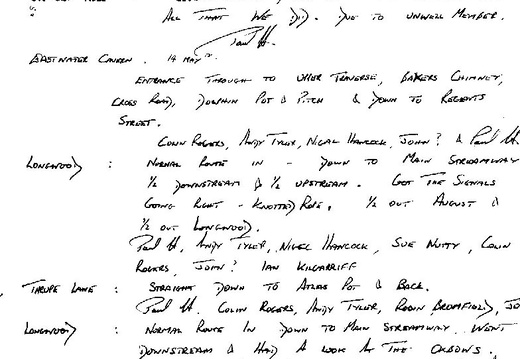 ALL THAT WE DID. DUE TO UNWELL MEMBER.
Paul H.
EASTWATER CAVERN. 14 MAY
ENTRANCE THROUGH TO UPPER TRAVERSE, BAKERS CHIMNEY,
CROSS ROAD, DOLPHIN POT & PITCH & DOWN TO REGENTS
STREET.
COLIN ROGERS, ANDY TYLER, NIGAL HANCOCK, JOHN? & Paul H
LONGWOOD : NORMAL ROUTE IN - DOWN TO MAIN STREAMWAY
1/2 DOWNSTREAM & 1/2 UPSTREAM. GOT THE SIGNALS
GOING RIGHT - KNOTTED ROPE. 1/2 OUT AUGUST &
1/2 OUT LONGWOOD.
Paul H, ANDY TYLER, NIGEL HANCOCK, SUE NUTTY, COLIN
ROGERS, JOHN? IAN KILGARRIFF
THRUPE LANE : STRAIGHT DOWN TO ATLAS POT & BACK.
Paul H, COLIN ROGERS, ANDY TYLER, ROBIN BROMFIELD, JO
LONGWOOD : NORMAL ROUTE IN DOWN TO MAIN STREAMWAY. WENT
DOWNSTREAM & HAD A LOOK AT THE OXBOWS.